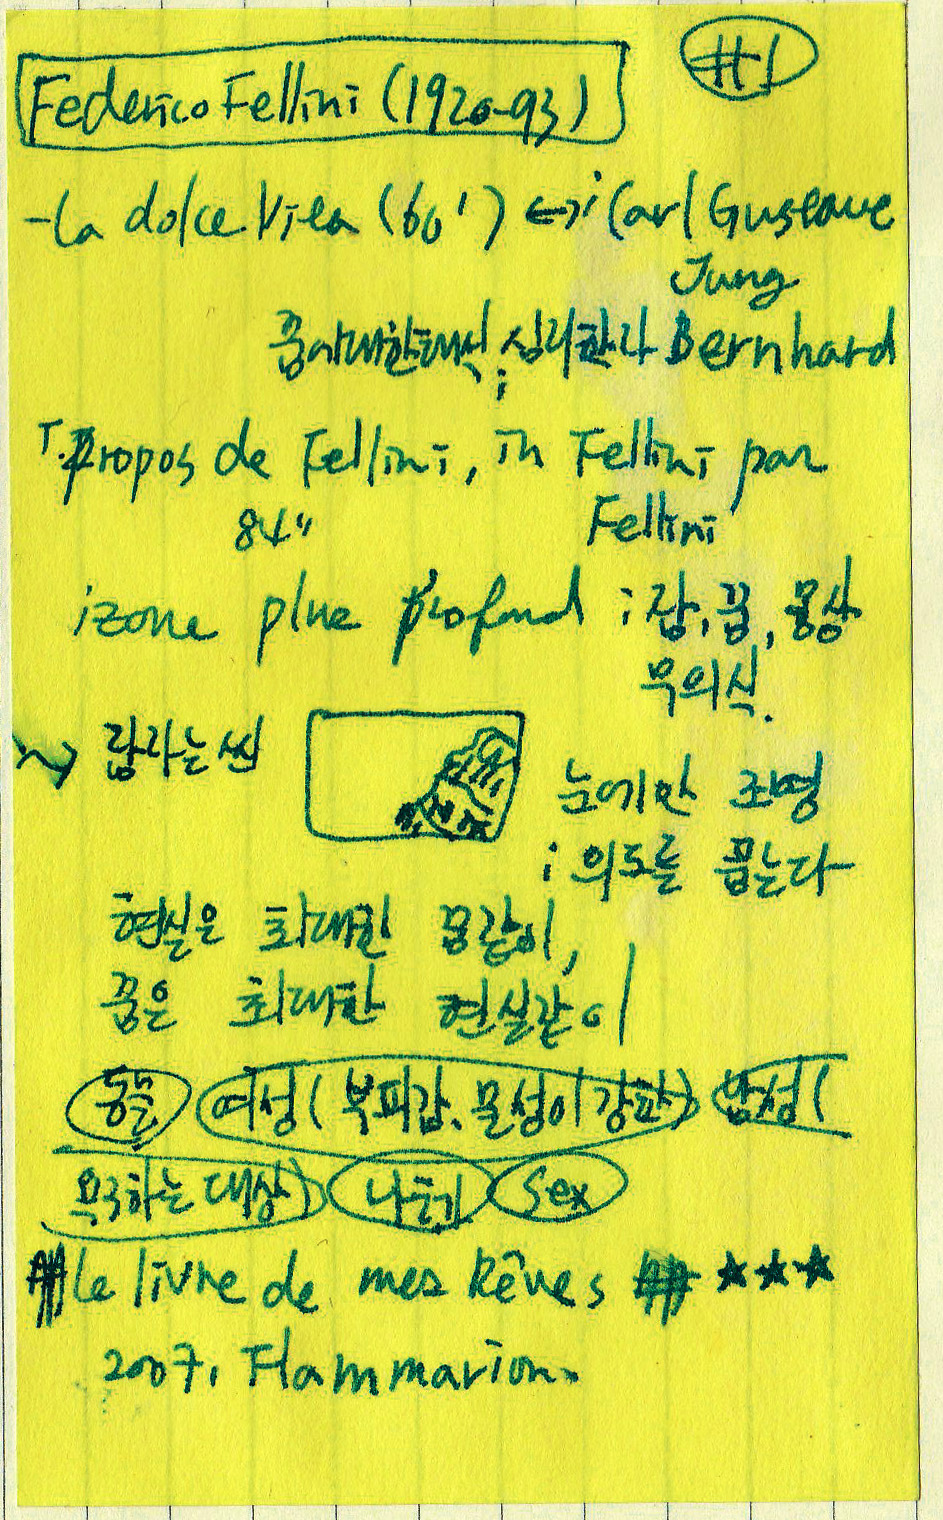 #1
Federico Fellini (1920-93)
-La dolce Vita (60') ↔; Carl Gustave
Jung
꿈에대한해석; 심리학자 Bernhard
Propos de Fellini, in Fellini par
84" Fellini
; zone plus profond ; 잠, 꿈, 몽상
무의식.
눈에만 조명
; 의도를 뿜는다
현실은 최대한 꿈같이,
꿈은 최대한 현실같이
동물 여성( 부피감, 물성이 강한) 남성(
욕구하는 대상) 나누기 Sex
# Le livre de mes Rêves # ★★★
2007, Flammarion.